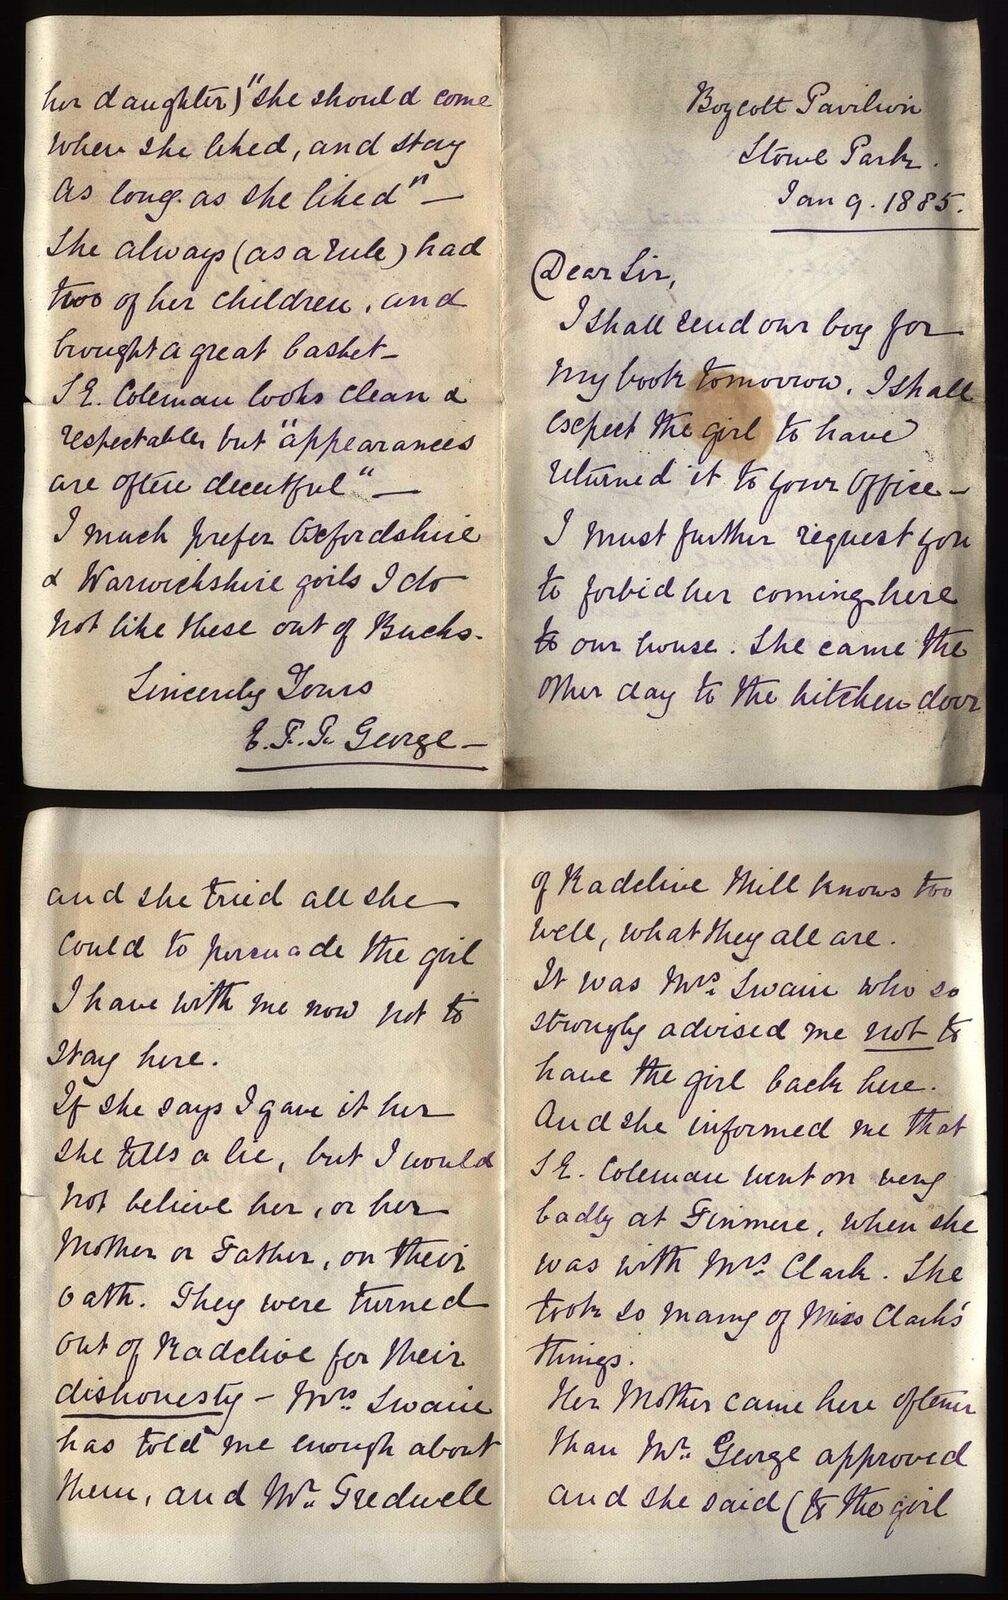 Boycott Pavilion
Stowe Park.
Jan 9. 1885.
Dear Sir,
I shall send our boy for
my book tomorrow. I shall
expect the girl to have
returned it to your office -
I must further request you
to forbid her coming here
to our house. She came the
other day to the kitchen door
and she tried all she
could to persuade the girl
I have with me now not to
stay here.
If she says I gave it her
she tells a lie, but I would
not believe her, or her
Mother or Father, on their
oath. They were turned
out of Radclive for their
dishonesty - Mrs. Swain
has told me enough about
them, and Mr. Tredwell
of Radclive Mill knows too
well, what they all are.
It was Mrs. Swain who so
strongly advised me not to
have the girl back here.
And she informed me that
S E. Coleman went on very
badly at Finmere, when she
was with Mrs. Clark. She
took so many of Miss Clark's
things.
Her Mother came here oftener
than Mr. George approved
and she said (to the girl
her daughter) "she should come
when she liked, and stay
as long as she liked" -
She always (as a rule) had
two of her children, and
brought a great basket -
S E. Coleman looks clean &
respectable, but "appearances
are often deceitful" -
I much prefer Oxfordshire
& Warwickshire girls I do
not like these out of Bucks -
Sincerely Yours
E. F. P. George -